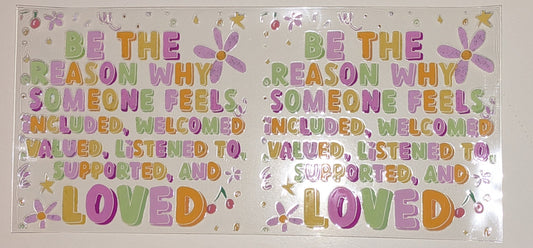 BE THE
REASON WHY
SOMEONE FEELS
INCLUDED, WELCOMED
VALUED, LISTENED TO,
SUPPORTED, AND
LOVED
BE THE
REASON WHY
SOMEONE FEELS
INCLUDED, WELCOMED
VALUED, LISTENED TO,
SUPPORTED, AND
LOVED